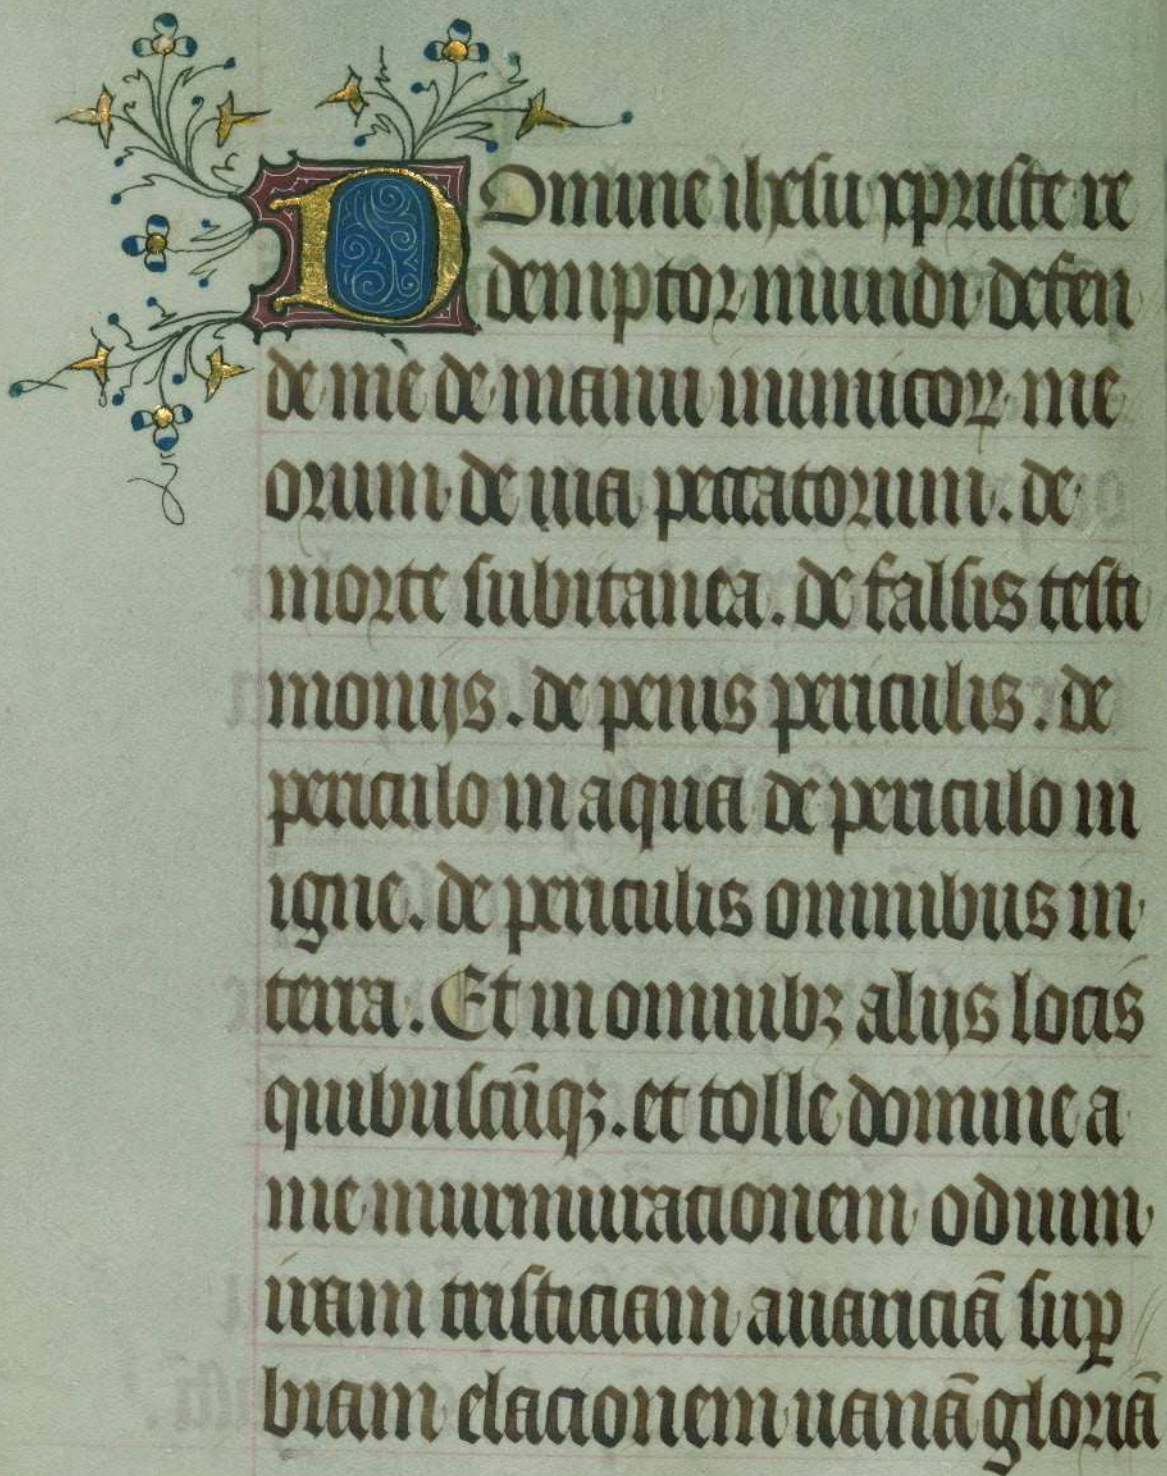 Domine ihesu xpriste re
demptor mundi defen
de me de manu inimicoꝝ me
orum de uia peccatorum. de
morte subitanea. de falsis testi
monijs. de penis periculis. de
periculo in aqua de periculo in
igne. de periculis omnibus in
terra. Et in omnibꝫ alijs locis
quibuscūqꝫ. et tolle domine a
me murmuracionem odium
iram tristiciam auariciā suꝑ
biam elacionem uanā gloriā